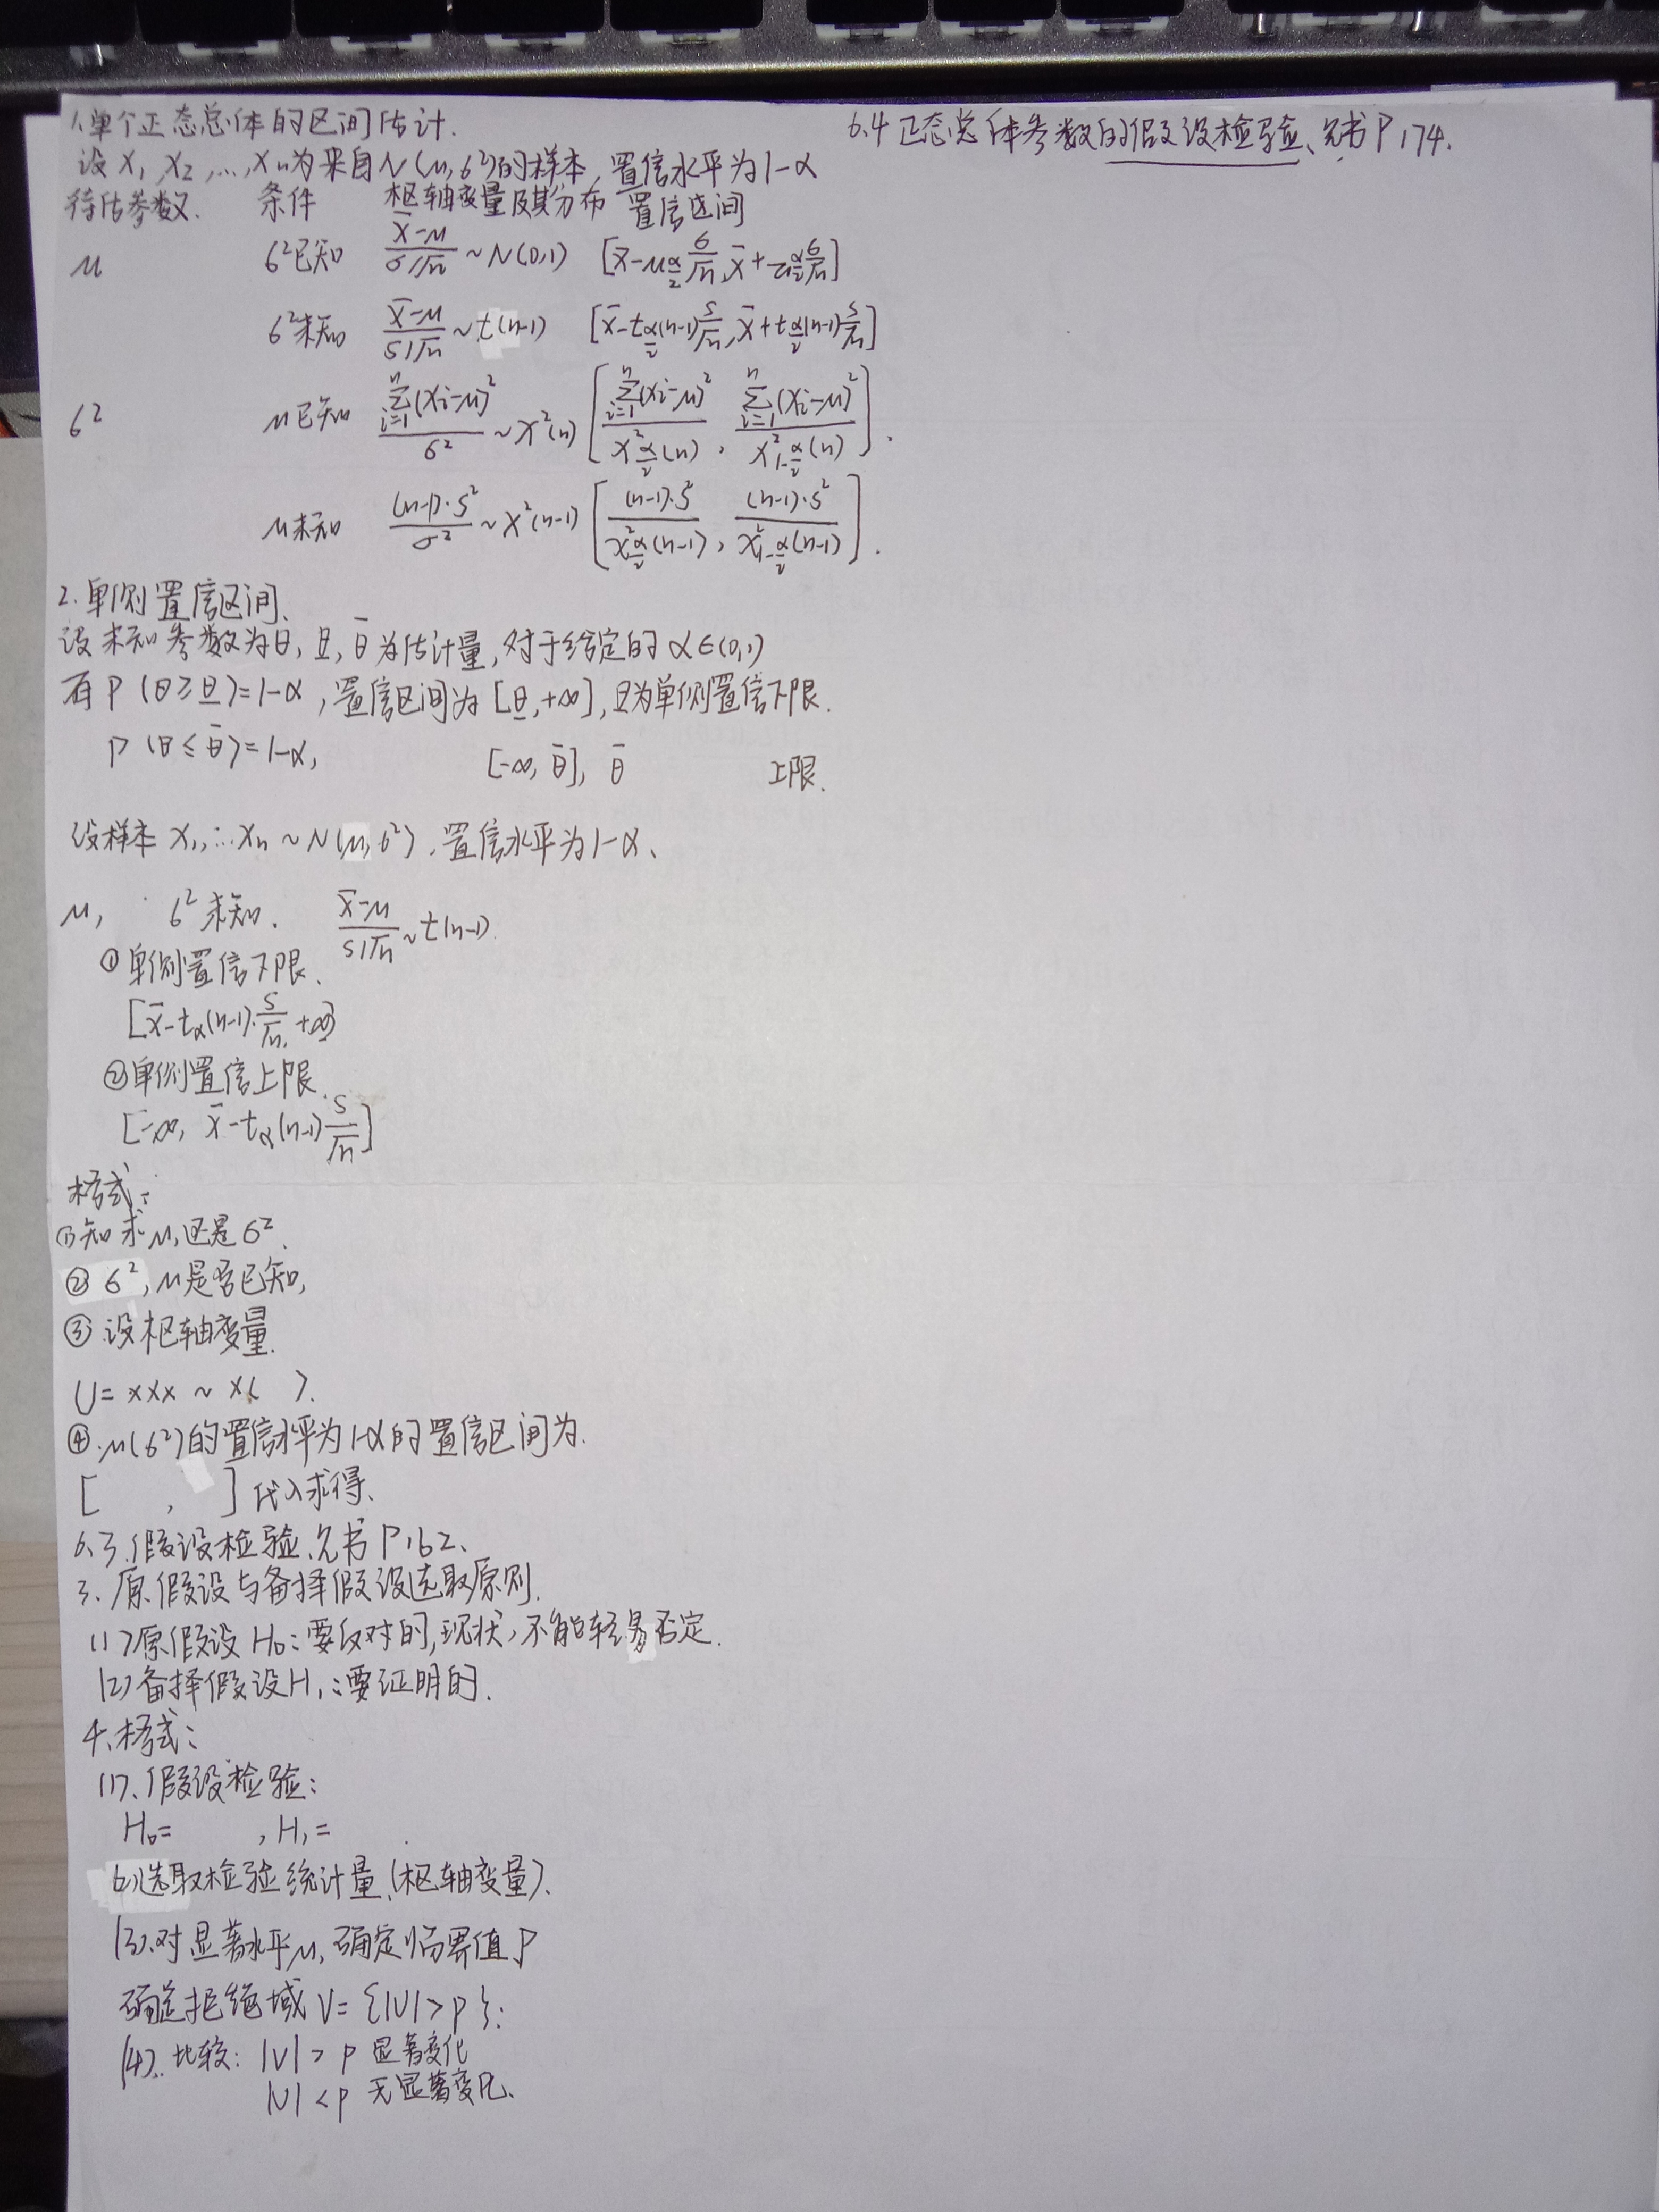 1.单个正态总体的区间估计.
设 X₁,X₂,…,Xₙ为来自N(μ,σ²)的样本,置信水平为1-α
待估参数. 条件 枢轴变量及其分布 置信区间
μ σ²已知 (X̄-μ)/(σ/√n) ~ N(0,1) [X̄-μ_{α/2} σ/√n, X̄+z_{α/2} σ/√n]
σ²未知 (X̄-μ)/(S/√n) ~ t(n-1) [X̄-t_{α/2}(n-1) S/√n, X̄+t_{α/2}(n-1) S/√n]
σ² μ已知 Σ_{i=1}^{n}(Xi-μ)²/σ² ~ χ²(n) [Σ_{i=1}^{n}(Xi-μ)²/χ²_{α/2}(n), Σ_{i=1}^{n}(Xi-μ)²/χ²_{1-α/2}(n)].
μ未知 (n-1)·S²/σ² ~ χ²(n-1) [(n-1)·S²/χ²_{α/2}(n-1), (n-1)·S²/χ²_{1-α/2}(n-1)].
2.单侧置信区间.
设未知参数为θ, θ̲, θ̄ 为估计量,对于给定的 α∈(0,1)
有 P(θ≥θ̲)=1-α,置信区间为 [θ̲,+∞],θ̲为单侧置信下限.
P(θ≤θ̄)=1-α, [-∞,θ̄], θ̄ 上限.
设样本 X₁,…Xₙ ~ N(μ,σ²),置信水平为1-α、
μ, σ²未知. (X̄-μ)/(S/√n) ~ t(n-1)
①单侧置信下限.
[X̄-t_α(n-1)·S/√n, +∞]
②单侧置信上限.
[-∞, X̄-t_α(n-1) S/√n]
格式:
①知求μ,还是σ².
②σ²,μ是否已知,
③设枢轴变量.
U= xxx ~ x( ).
④.μ(σ²)的置信水平为1-α的置信区间为.
[ , ] 代入求得.
6.3.假设检验.见书P162.
3.原假设与备择假设选取原则.
(1)原假设H₀:要反对的,现状,不能轻易否定.
(2)备择假设H₁:要证明的.
4.格式:
(1).假设检验:
H₀= ,H₁=
(2)选取检验统计量.(枢轴变量).
(3).对显著水平μ,确定临界值P
确定拒绝域 V={|U|>P}:
(4).比较: |U|>P 显著变化
|U|<P 无显著变化.
6.4 正态总体参数的假设检验、见书P174.